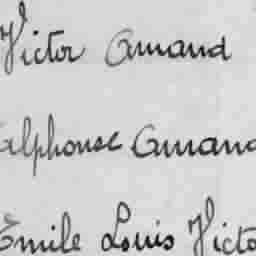 Victor Amand
Alphonse Amand
Émile Louis Victo